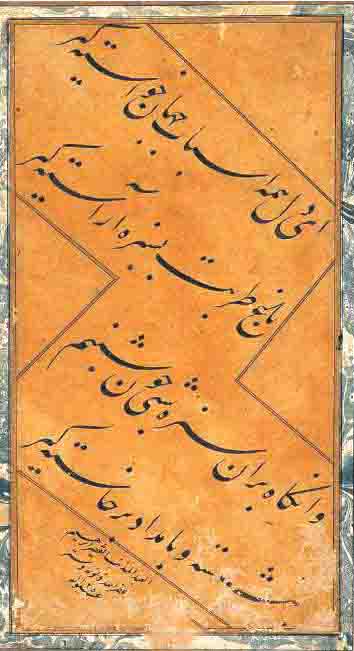 ای دل همه اسباب جهان خواسته گیر
باغ طربت بسبزه آراسته گیر
وانگاه بر آن سبزه شبی چون شبنم
بنشسته و بامداد برخاسته گیر